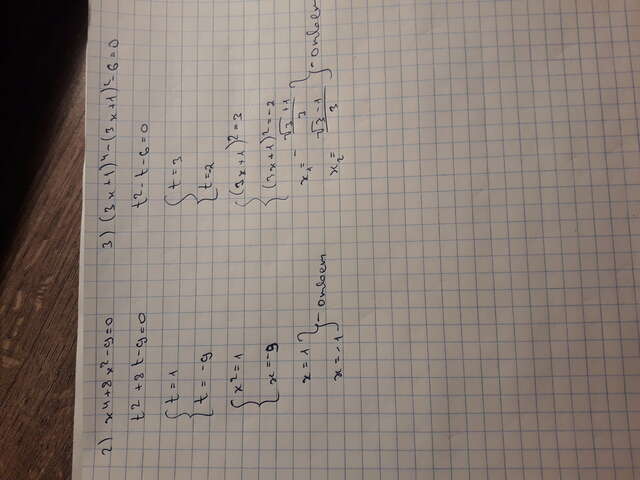 2) x⁴+8x²-9=0
t²+8t-9=0
{ t=1
{ t=-9
{ x²=1
{ x=-9
x=1
x=-1 } - ответ
3) (3x+1)⁴-(3x+1)²-6=0
t²-t-6=0
{ t=3
{ t=2
{ (3x+1)²=3
{ (3x+1)²=-2
x₁= - √3+1/3
x₂= √3-1/3 } - ответ